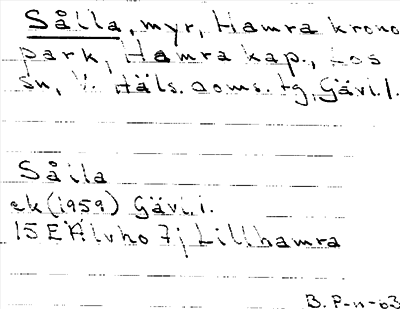 Sålla, myr, Hamra krono
park, Hamra kap., Los
sn, V. Häls. doms. tg, Gävl. l.
Sålla
ek (1959) Gävl. l.
15E Älvho 7j Lillhamra
B. P-n -63